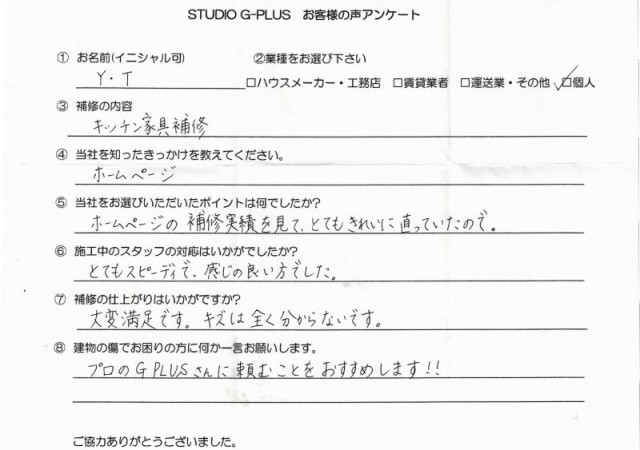 STUDIO G-PLUS お客様の声アンケート
① お名前(イニシャル可) ②業種をお選び下さい
Y・T
□ハウスメーカー・工務店 □賃貸業者 □運送業・その他 ☑個人
③ 補修の内容
キッチン家具補修
④ 当社を知ったきっかけを教えてください。
ホームページ
⑤ 当社をお選びいただいたポイントは何でしたか?
ホームページの補修実績を見て、とてもきれいに直っていたので。
⑥ 施工中のスタッフの対応はいかがでしたか?
とてもスピーディで、感じの良い方でした。
⑦ 補修の仕上がりはいかがですか?
大変満足です。キズは全く分からないです。
⑧ 建物の傷でお困りの方に何か一言お願いします。
プロのG PLUSさんに頼むことをおすすめします!!
ご協力ありがとうございました。